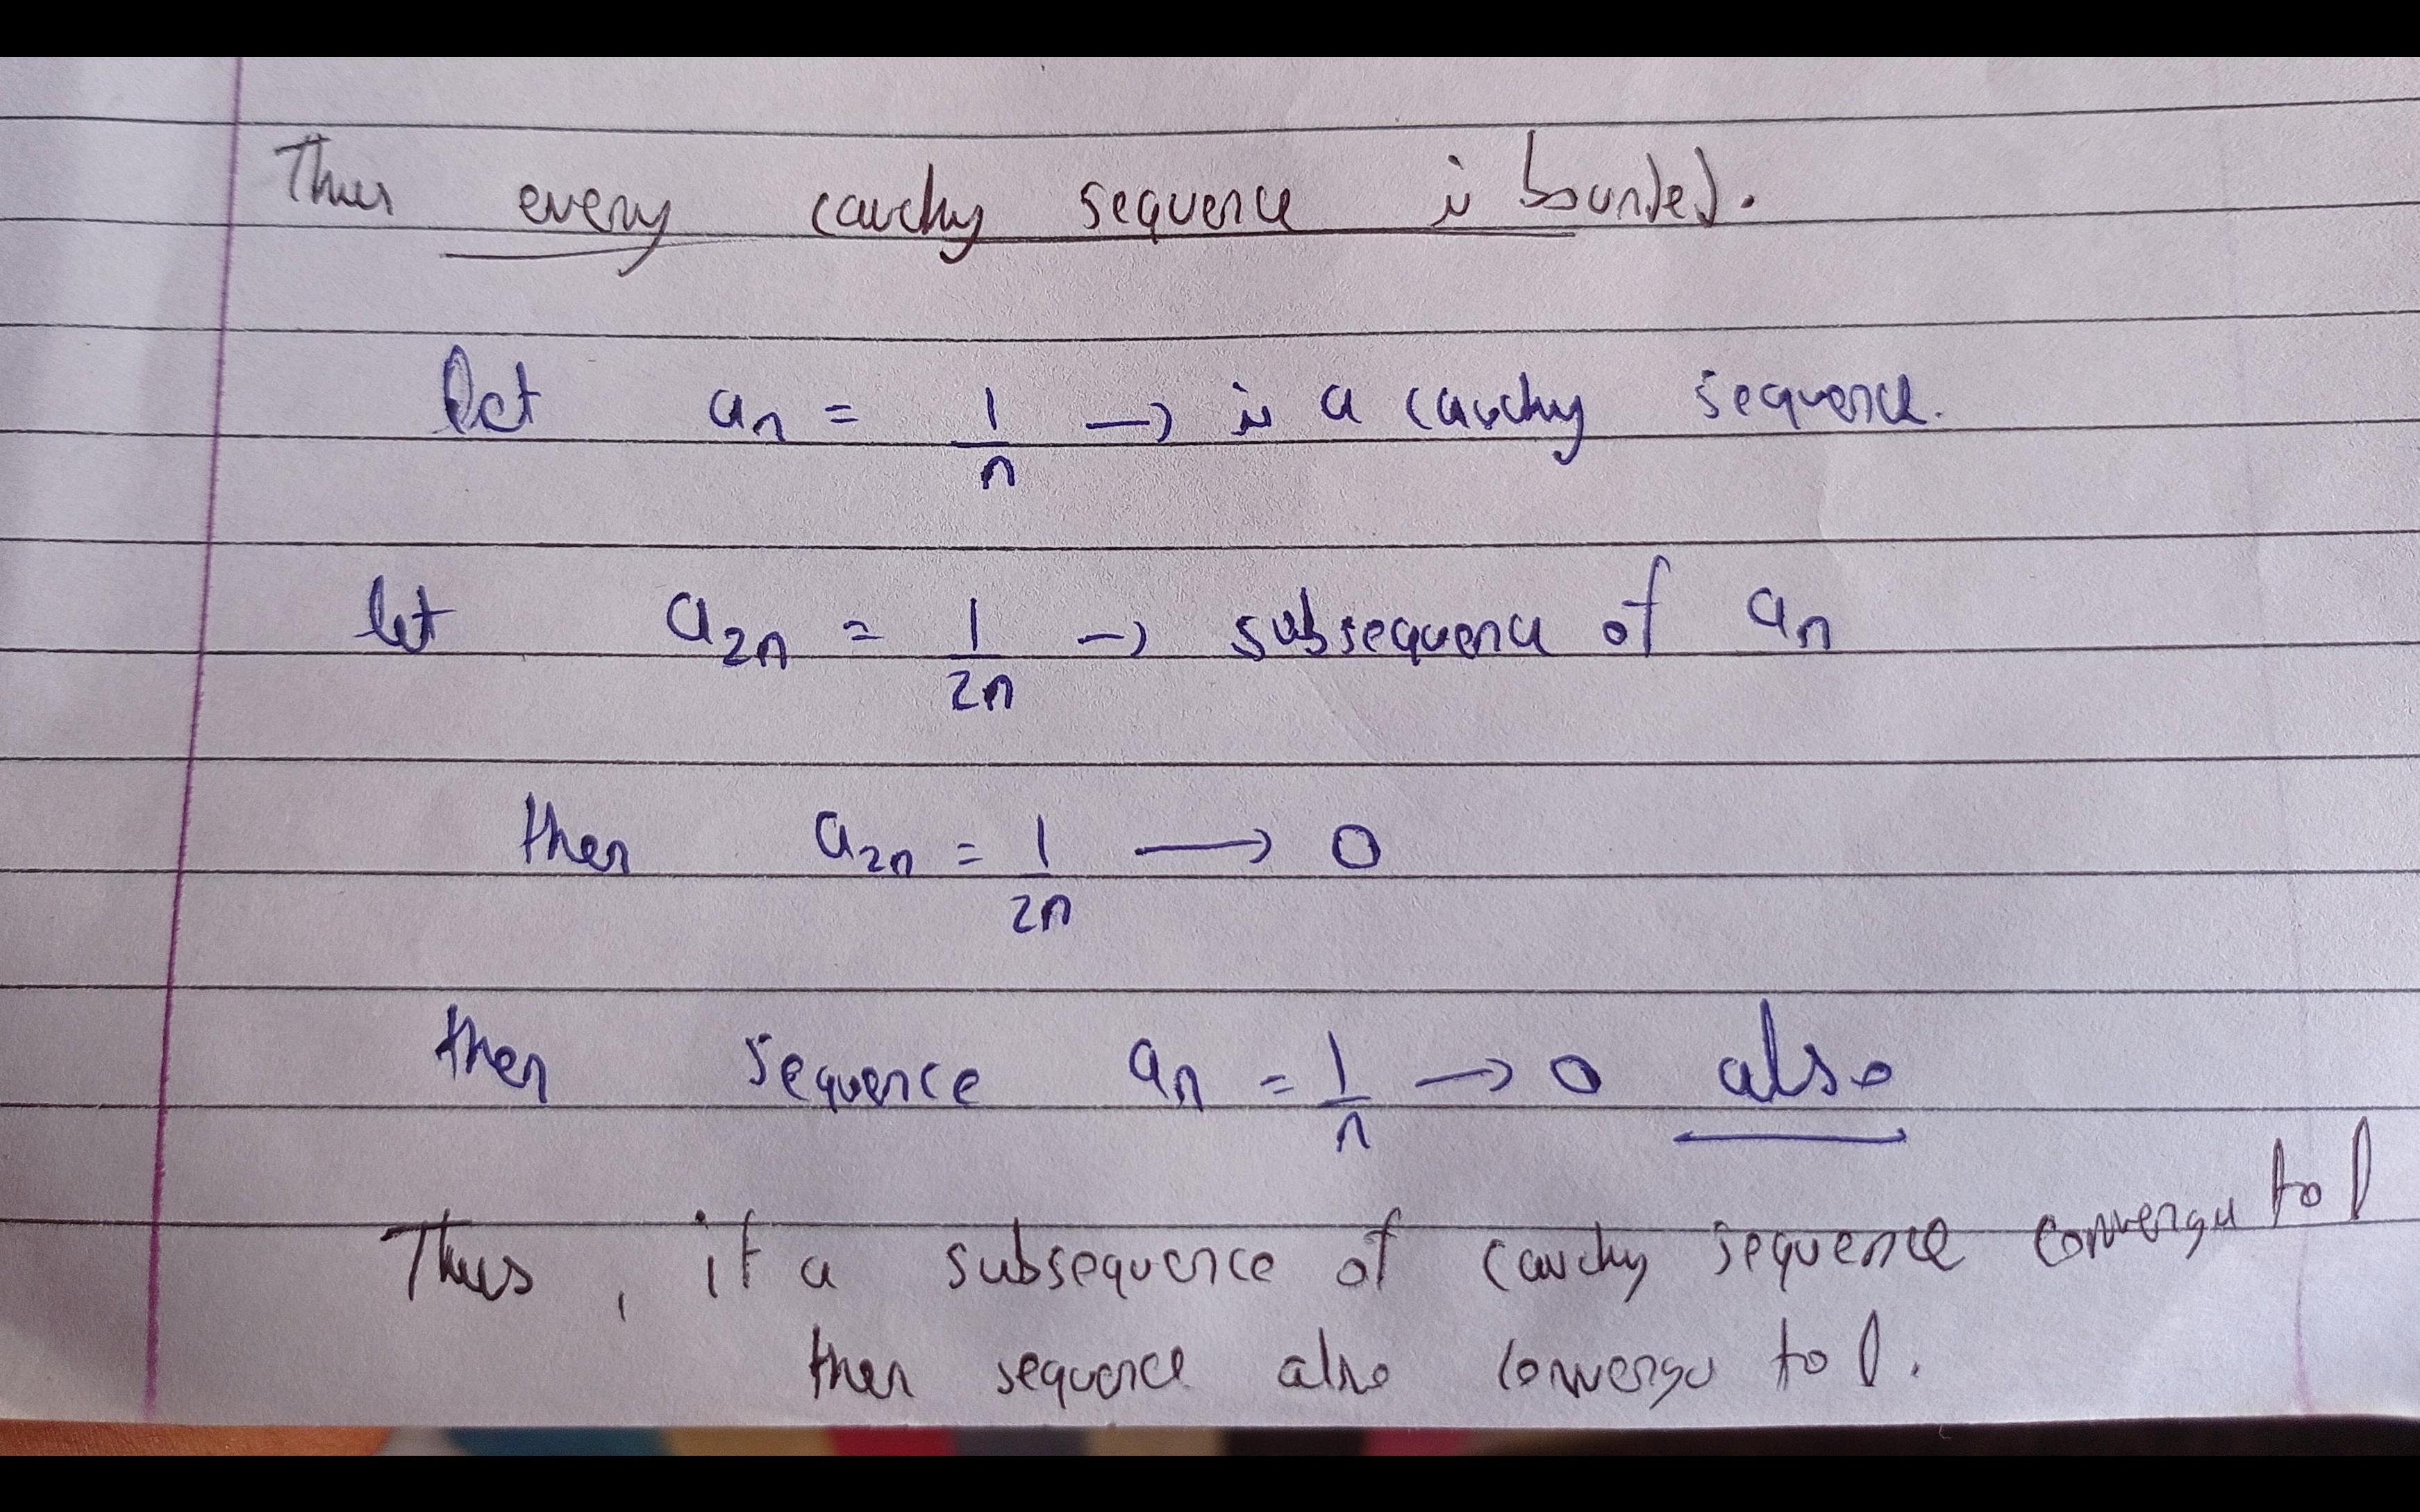 Thus every cauchy sequence is bounded.
let a_n = 1/n → is a cauchy sequence.
let a_2n = 1/2n → subsequence of a_n
then a_2n = 1/2n → 0
then sequence a_n = 1/n → 0 also
Thus, if a subsequence of cauchy sequence converges to l
then sequence also converges to l.